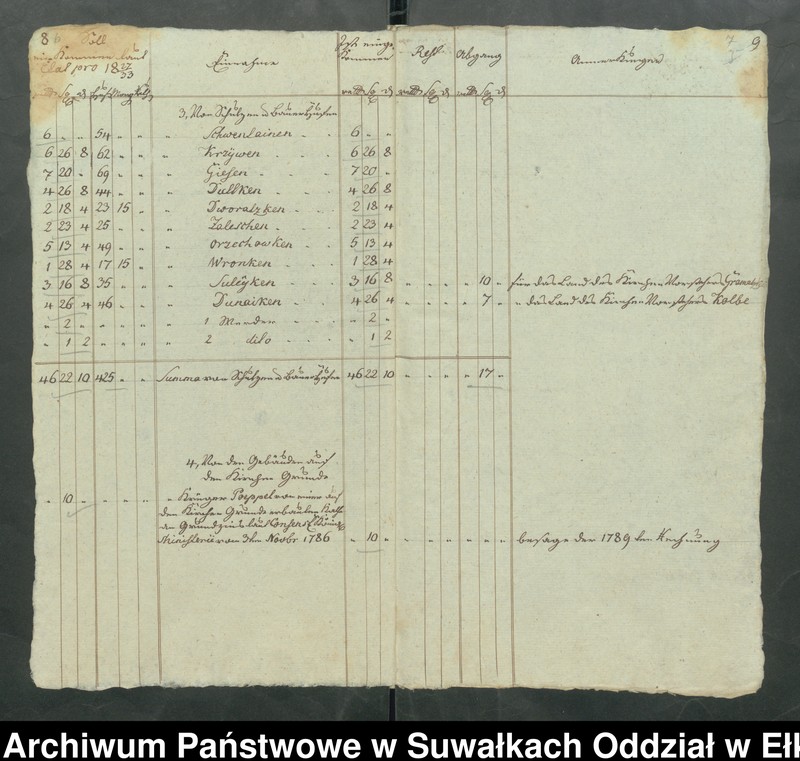 8 6 Soll 7 9
einkommen laut Ist einge-
Etat pro 18 27/33 Einnahme kommen Rest Abgang Anmerkungen
rtl Sg d rtl Sg d rtl Sg d rtl Sg d
3, Von Schulzen u Bauer Hufen
6 " " 54 " " " Schwenlainen 6 " "
6 26 8 62 " " " Krzywen 6 26 8
7 20 " 69 " " " Giesen 7 20 "
4 26 8 44 " " " Dullken 4 26 8
2 18 4 23 15 " " Dworatzken 2 18 4
2 23 4 25 " " " Zaleschen 2 23 4
5 13 4 49 " " " Orzechowken 5 13 4
1 28 4 17 15 " " Wronken 1 28 4
3 16 8 35 " " " Suleyken 3 16 8 " " " " 10 " für das Land des Kirchen Vorstehers
4 26 4 46 " " " Dunaiken 4 26 4 " " " " 7 " " das Land des Kirchen Vorstehers Kolbe
" 2 " " " " " 1 " 2 "
" 1 2 " " " " 2 dito " 1 2
46 22 10 425 " " Summa von Schulzen u Bauer Hufen 46 22 10 " " " " 17 "
4, Von den Gebäuden auf
den Kirchen Grunde
" 10 " " " " " Krüger Poeppel von einer auf
den Kirchen Grunde erbauten
an Grundzins laut Consens
Ministerii vom 3ten Novbr 1786 " 10 " " " " " " " besage der 1789ten Rechnung
Archiwum Państwowe w Suwałkach Oddział w Ełk